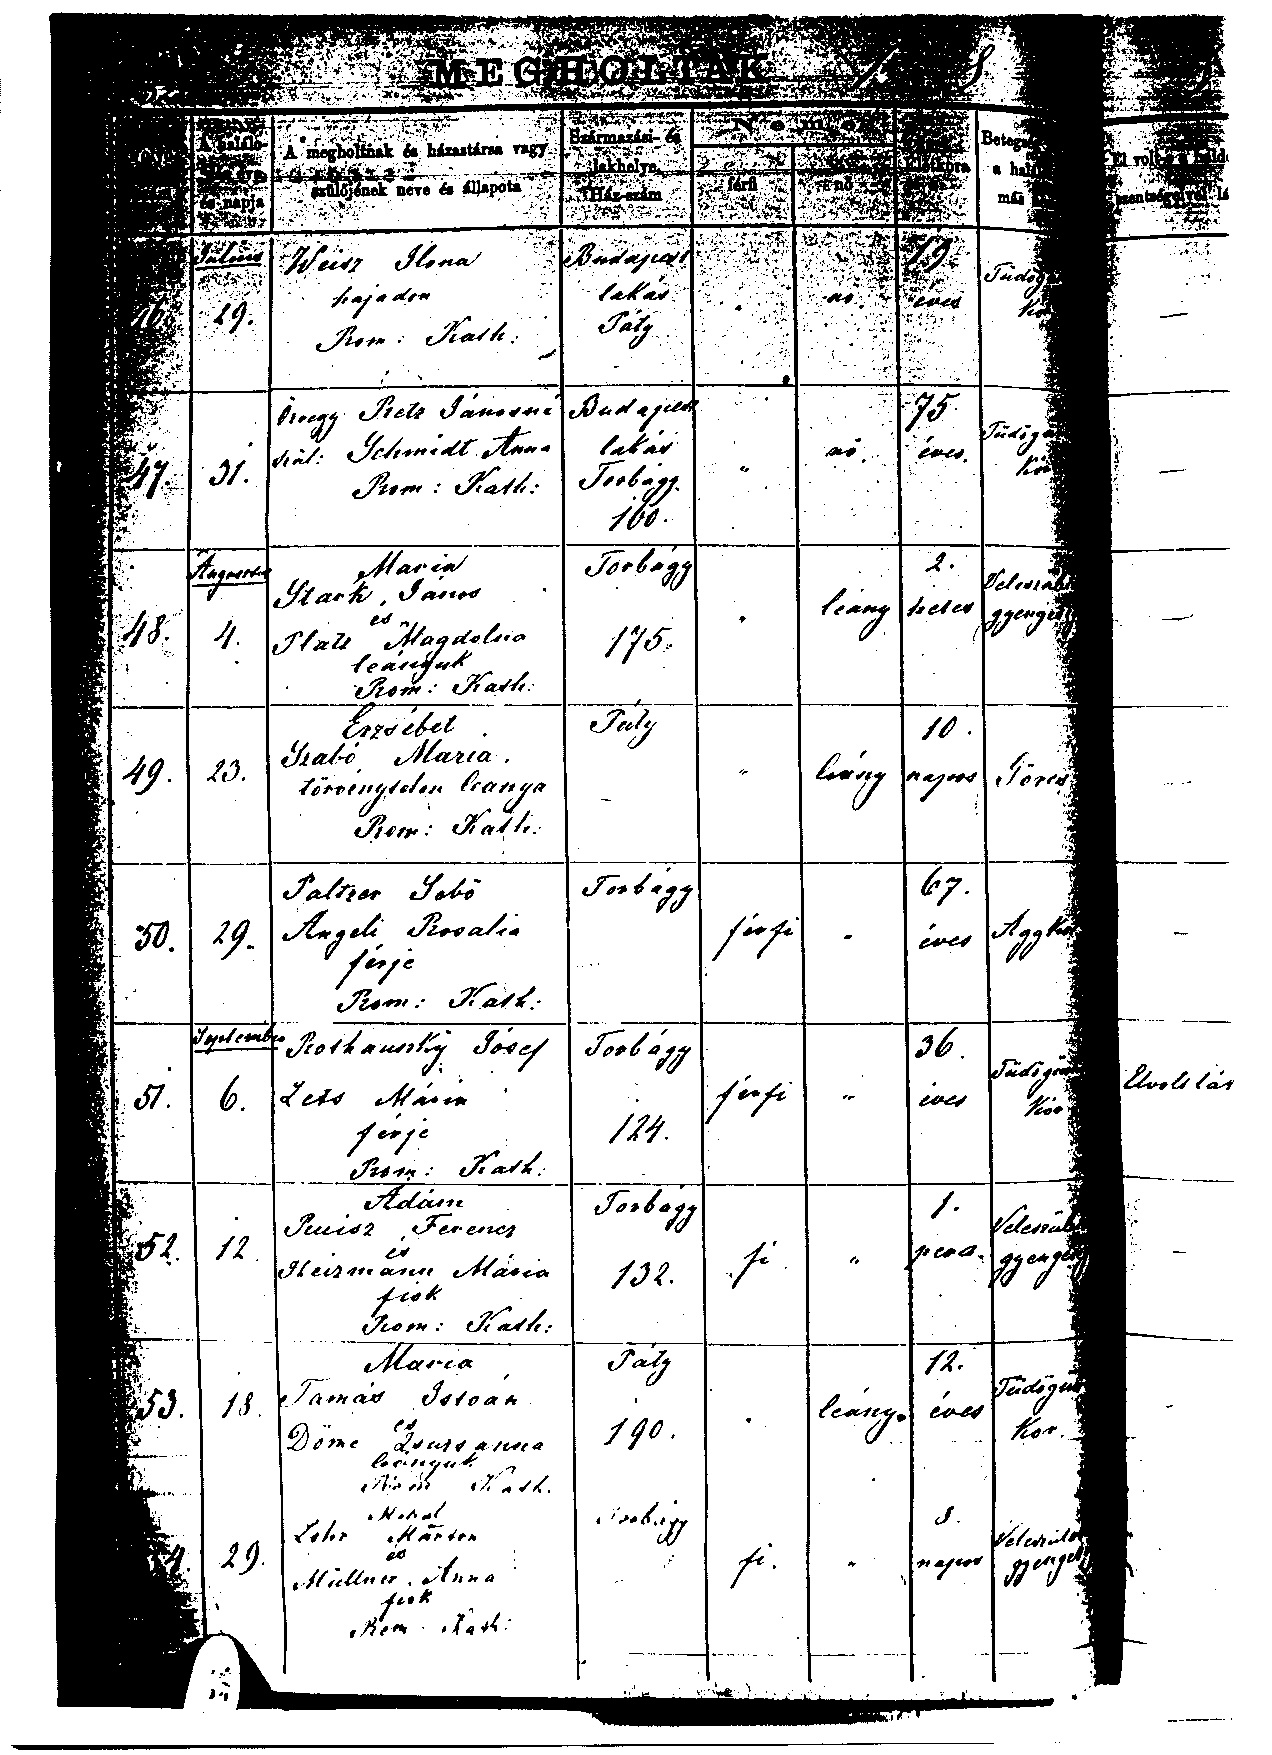 MEGHOLTAK
A halálo-
és napja
A megholtnak és házastársa vagy
szülőjének neve és állapota
Származási- és
lakhelye,
Ház-szám
Neme
férfi
nő
Beteg
a halá
más
El volt-e a hald
szentségeivel lá
Július
29.
Weisz Ilona
hajadon
Rom: Kath:
Budapest
lakás
Páty
"
nő.
19.
éves
Tüdőg
Kó
—
47.
31.
Özvegy Retz Jánosné
szül: Schmidt Anna
Rom: Kath:
Budapest
lakás
Torbágy.
160.
"
nő.
75.
éves.
Tüdőgü
Kór
—
48.
Augusztus
4.
Maria
Stark János
és
Platz Magdolna
leányuk
Rom: Kath:
Torbágy
175.
"
leány
2.
hetes
Veleszül
gyenges
—
49.
23.
Erzsébet
Szabó Maria.
törvénytelen leanya
Rom: Kath:
Páty
"
leány
10.
napos
Görcs
—
50.
29.
Paltzer Sebő
Angeli Rosalia
férje
Rom: Kath:
Torbágy
férfi
"
67.
éves
Aggkó
—
51.
September
6.
József
Mária
férje
Rom: Kath:
Torbágy
124.
férfi
"
36.
éves
Tüdőgü
Kór
Elvolt lát
52.
12
Ádám
Ferencz
és
Heizmann Mária
fiok
Rom: Kath:
Torbágy
132.
fi
"
1.
Veleszül
gyenges
—
53.
18.
Maria
Tamás István
és
Döme Zsuzsanna
leányuk
Rom Kath.
Páty
190.
"
leány.
12.
éves
Tüdőgü
Kor.
29.
Márton
és
Müllner Anna
fiok
Rom. Kath:
Torbágy
fi.
"
8.
napos
Veleszül
gyenges